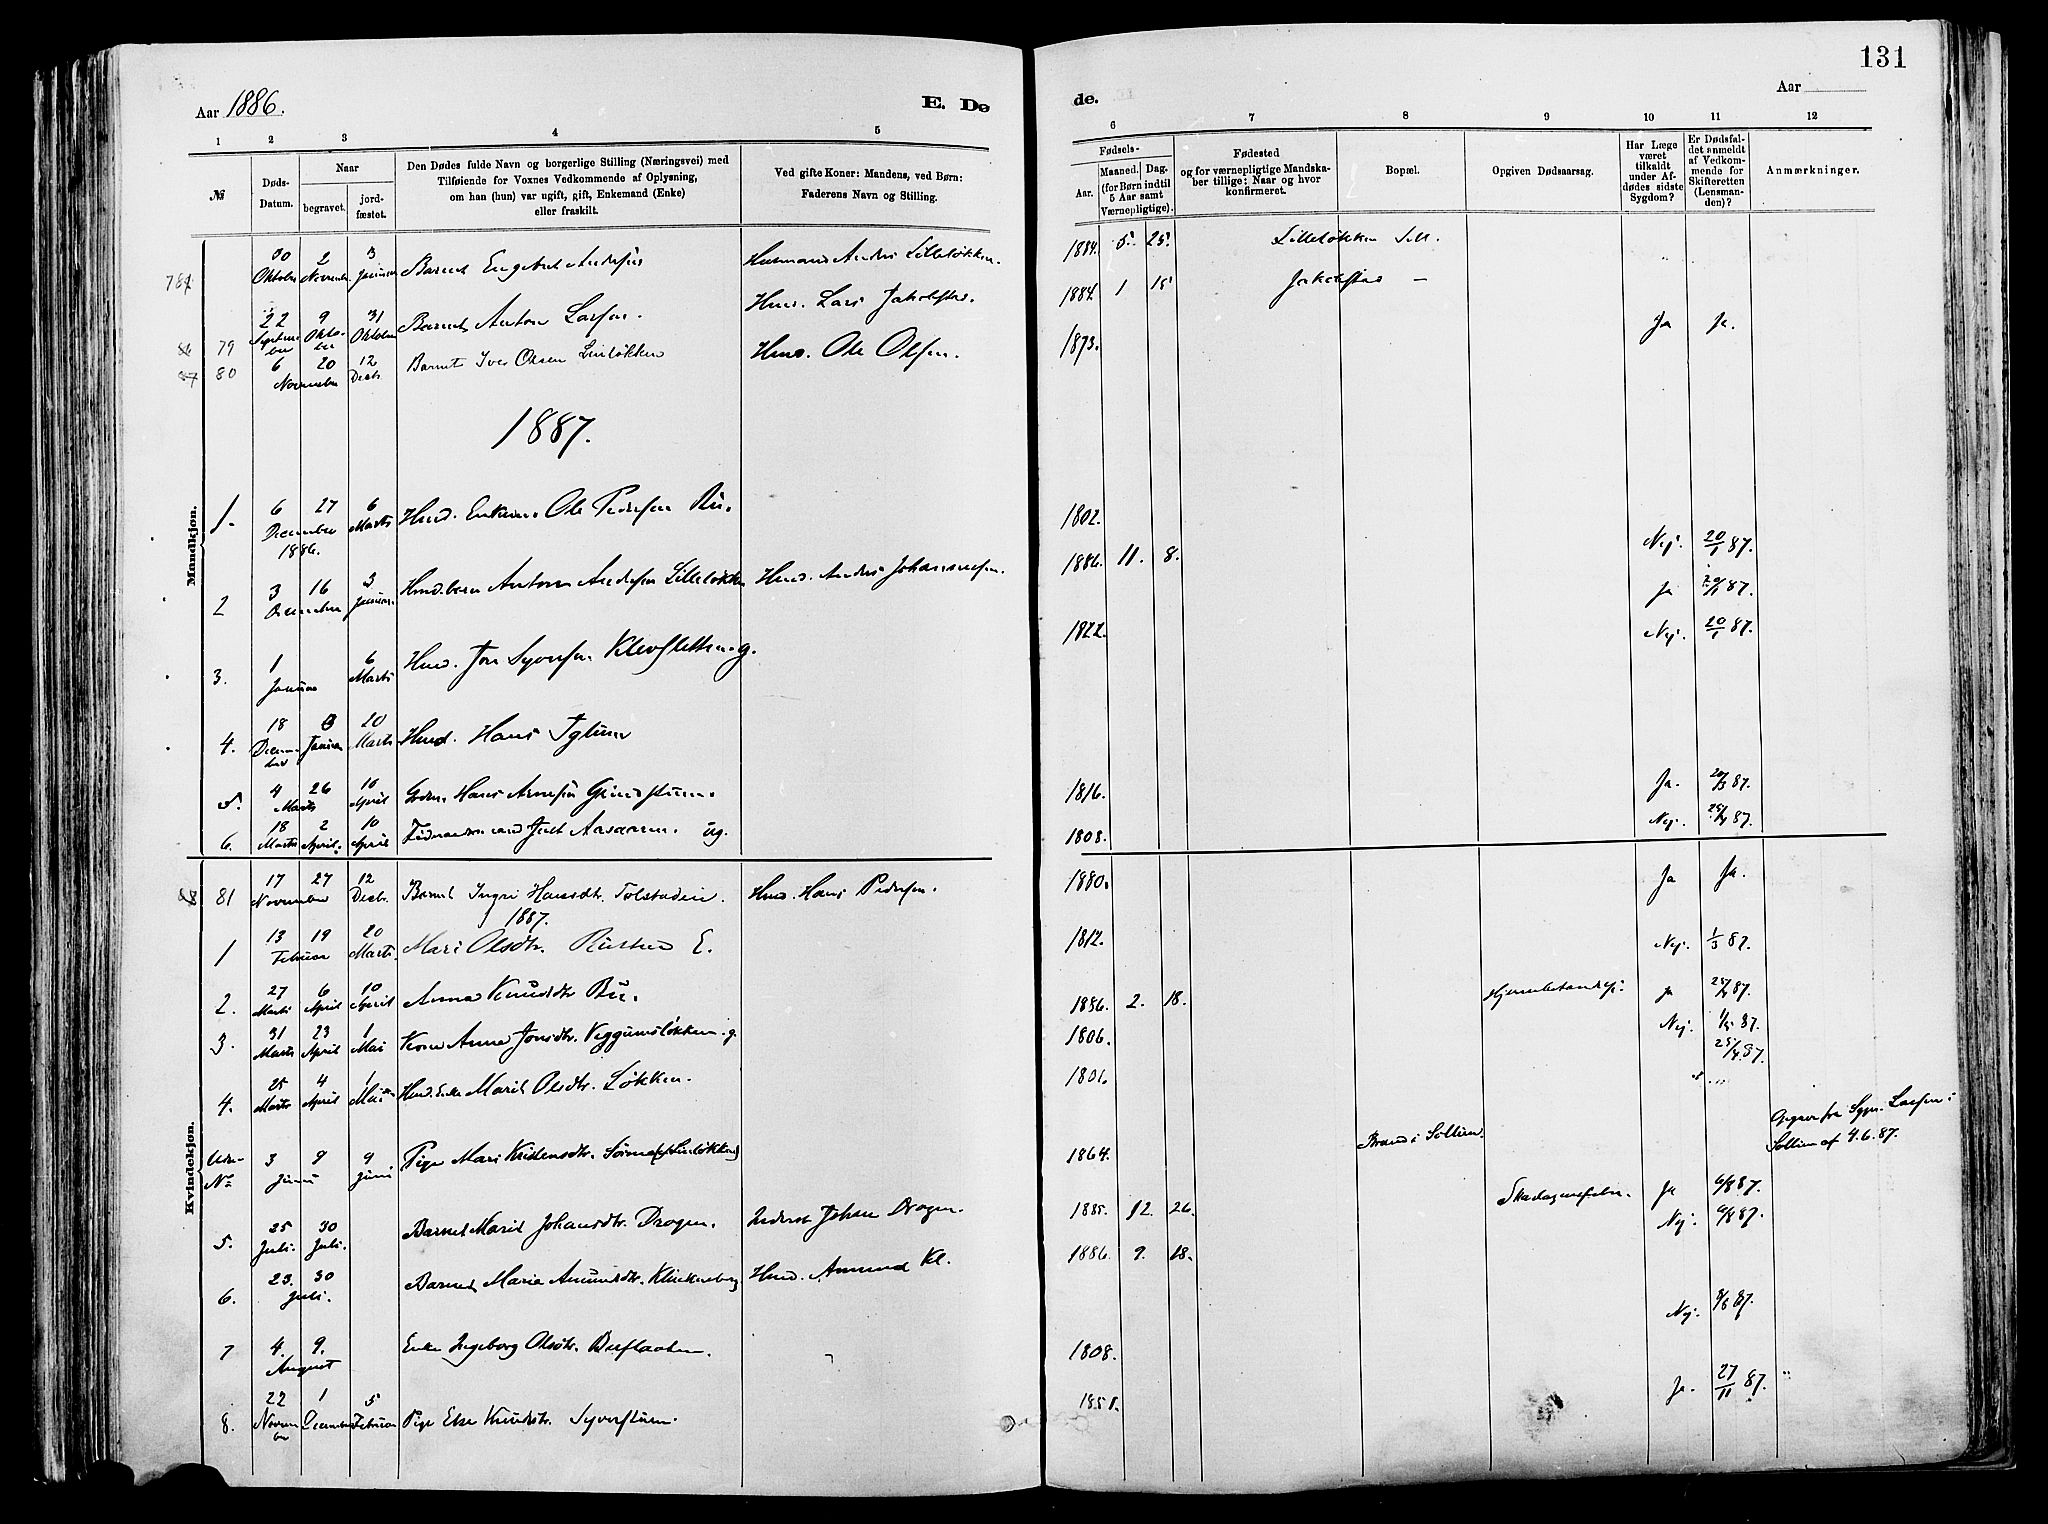 131
Aar 1886.
E. Dø
de.
Aar
1 2 3 4 5 6 7 8 9 10 11 12
№
Døds-Datum.
Naar
begravet.
jord-fæstet.
Den Dødes fulde Navn og borgerlige Stilling (Næringsvei) med
Tilføiende for Voxnes Vedkommende af Oplysning,
om han (hun) var ugift, gift, Enkemand (Enke)
eller fraskilt.
Ved gifte Koner: Mandens, ved Børn:
Faderens Navn og Stilling.
Fødsels-
Aar.
Maaned. Dag.
(for Børn indtil
5 Aar samt
Værnepligtige).
Fødested
og for værnepligtige Mandska-
ber tillige: Naar og hvor
konfirmeret.
Bopæl.
Opgiven Dødsaarsag.
Har Læge
været
tilkaldt
under Af-
dødes sidste
Sygdom?
Er Dødsfal-
det anmeldt
af Vedkom-
mende for
Skifteretten
(Lensman-
den)?
Anmærkninger.
Mandkjøn.
30 Oktober 2 November 3 Januar Barnet Engebret Andersen Husmand Anders Lilleløkken. 1884. 5. 25. Lilleløkken Sell.
22 September 9 Oktober 31 Oktober Barnet Anton Larsen. Husm. Lars Jakobstad. 1884. 1 15 Jakobstad —
79
80 6 November 20 12 Decbr. Barnet Iver Olsen Linløkken Husm. Ole Olsen. 1873. Ja Ja.
1887.
1. 6 December 1886. 27 6 Marts Husm. Enkem. Ole Pedersen Bu. 1802. Nej. 20/1 87.
2 3 December 16 3 Januar. Husm.barn Anton Andersen Lilleløkken Husm. Anders Johannesen. 1886. 11. 8. Ja 20/1 87.
3. 1 Januar 6 Marts Husm. Jon Syversen Klevsletten. g. 1822. Nej. 20/1 87.
4. 18 December Januar 20 Marts Husm. Hans Iglum
5. 4 Marts 26 10 April Hans Arnesen Grindstuen. 1816. Ja. 20/3 87.
6. 18 Marts 2 April. 10 April Aasaaren. ug. 1808. Nej. 25/4 87.
Kvindekjøn.
81 17 November 27 12 Decbr. Barnet Ingri Hansdtr. Tolstadeie. Husm. Hans Pedersen. 1880. Ja Ja.
1887.
1 13 Februar 19 20 Marts. Mari Olsdtr. Rusten E. 1812. Nej. 1/3 87.
2. 27 Marts 6 April 10 April Anna Knudsdtr Bu. 1886. 2. 18. Hjernebetændelse. Ja 25/4 87.
3. 31 Marts 23 April 1 Mai Kone Anna Jonsdtr. Veggumsløkken. g. 1806. Nej. 1/5 87.
4. 25 Marts 4 April 1 Mai Husm. Enke Marit Olsdtr. Løkken. 1801. 25/4 87.
Uden No 3 Juni 9 9 Juni Pige Mari Kristensdtr. 1864. Brænd i Sollien. Opgaver fra Sgpr. Larsen i
Sollien af 4.6.87.
5. 25 Juli. 30 Juli. Barnet Marit Johansdtr. Dragen. Johan Dragen. 1885. 12. 26. Skarlagensfeber. Ja 6/8 87.
6. 23. Juli. 30 Barnet Marie Amundsdtr. Klukkenberg Husm. Amund Kl. 1886. 9. 18. Nej. 6/8 87.
7 4. August 9. Enke Ingeborg Olsdtr. 1808. Nej. 8/8 87.
8. 22 November 1 December 5 Februar Pige Else Knudsdtr. Syverstuen. 1851. Ja. 27/11 87.